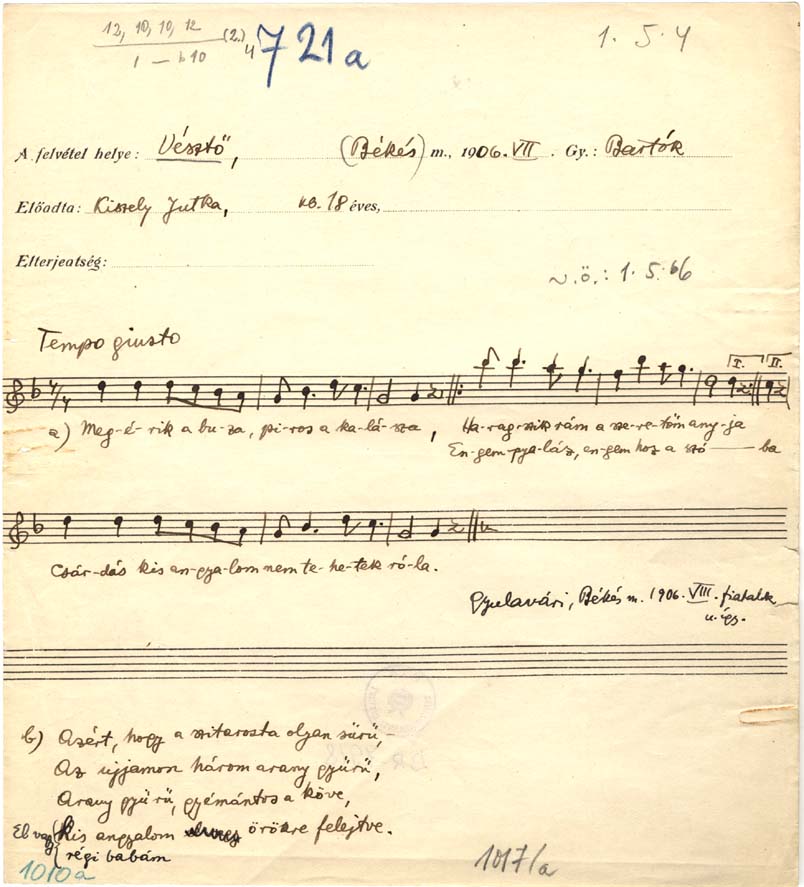 12, 10, 10, 12 (2.) 4 721a 1. 5. 4
1 — b10
A felvétel helye: Vésztő, (Békés) m., 1906. VII. Gy.: Bartók
Előadta: Kiszely Jutka, kb. 18 éves,
Elterjedtség:
v.ö.: 1. 5. 66
Tempo giusto
I. II.
a) Meg-é-rik a bu-za, pi-ros a ka-lá-sza, Ha-rag-szik rám a sze-re-tőm any-ja
En-gem-gya-láz, en-gem hoz a szó — ba
Csár-dás kis an-gya-lom nem te-he-tek ró-la.
Gyulavári, Békés m. 1906. VIII. fiatalok
u. így.
b) Azért, hogy a szitarosta olyan sürü,
Az ujjamon három arany gyürü,
Arany gyürü, gyémántos a köve,
Kis angyalom örökre felejtve.
régi babám
1010a 1017/a